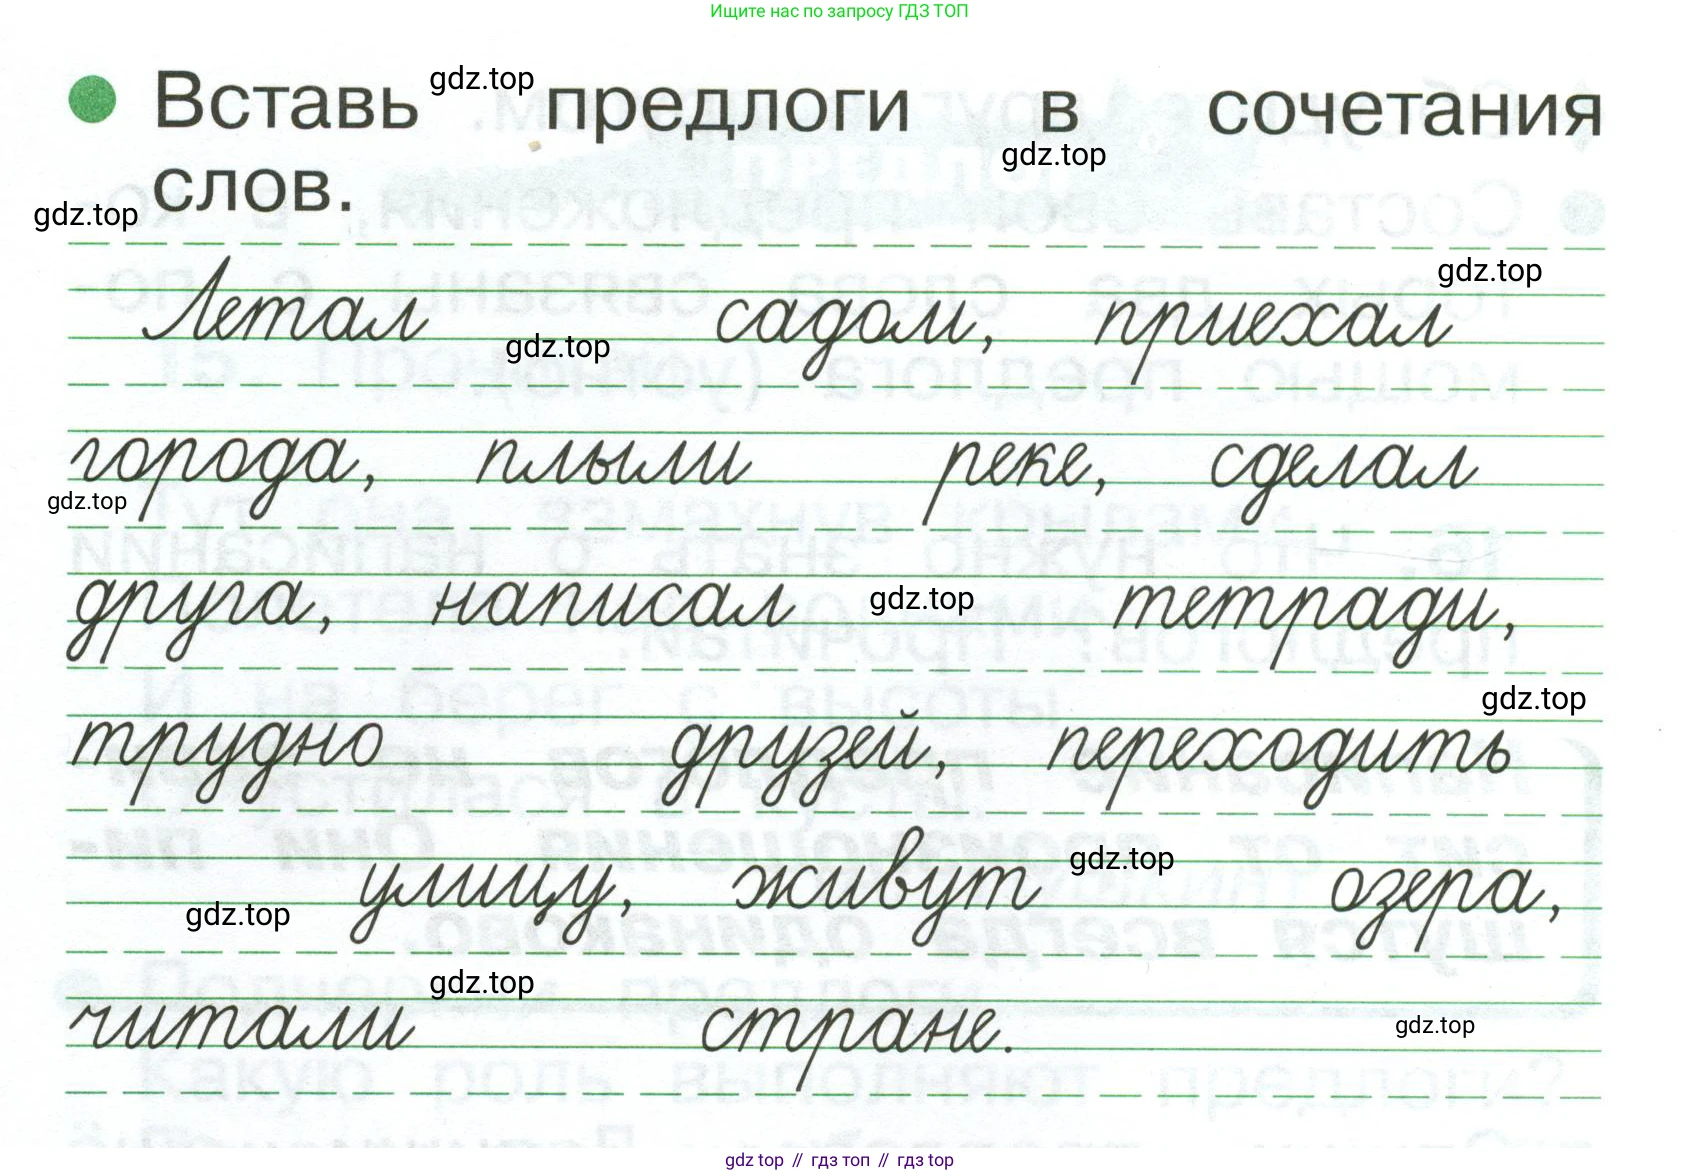 Ищите нас по запросу ГДЗ ТОП
Вставь gdz.top предлоги в сочетания
gdz.top
слов.
gdz.top
gdz.top
Летал gdz.top садом, приехал
города, плыли реке, сделал
gdz.top
друга, написал gdz.top тетради,
gdz.top
трудно друзей, переходить
gdz.top улицу, живут gdz.top озера,
gdz.top
читали стране.
gdz.top
gdz top // гдз топ // гдз top